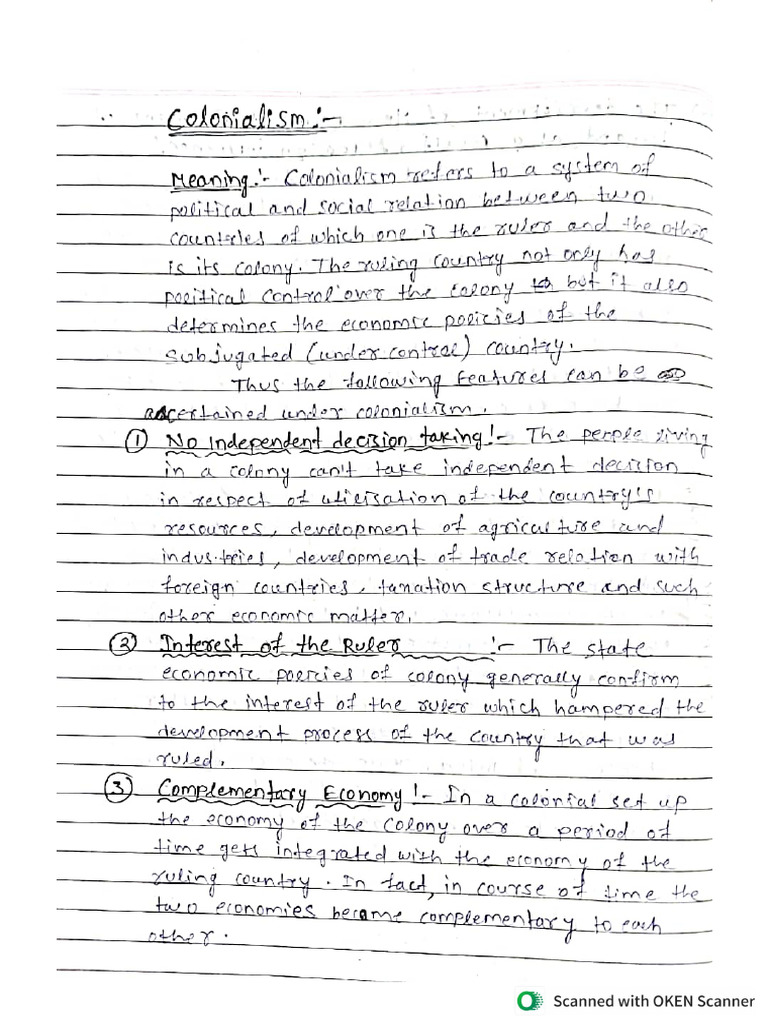 Colonialism :-
Meaning :- Colonialism refers to a system of
political and social relation between two
countries of which one is the ruler and the other
is its colony. The ruling country not only has
political control over the colony but it also
determines the economic policies of the
subjugated (under control) country.
Thus the following features can be
ascertained under colonialism.
① No independent decision taking :- The people living
in a colony can't take independent decision
in respect of utilisation of the country's
resources, development of agriculture and
industries, development of trade relation with
foreign countries, taxation structure and such
other economic matter.
② Interest of the Ruler :- The state
economic policies of colony generally confirm
to the interest of the ruler which hampered the
development process of the country that was
ruled.
③ Complementary Economy :- In a colonial set up
the economy of the colony over a period of
time gets integrated with the economy of the
ruling country. In fact, in course of time the
two economies became complementary to each
other.
Scanned with OKEN Scanner